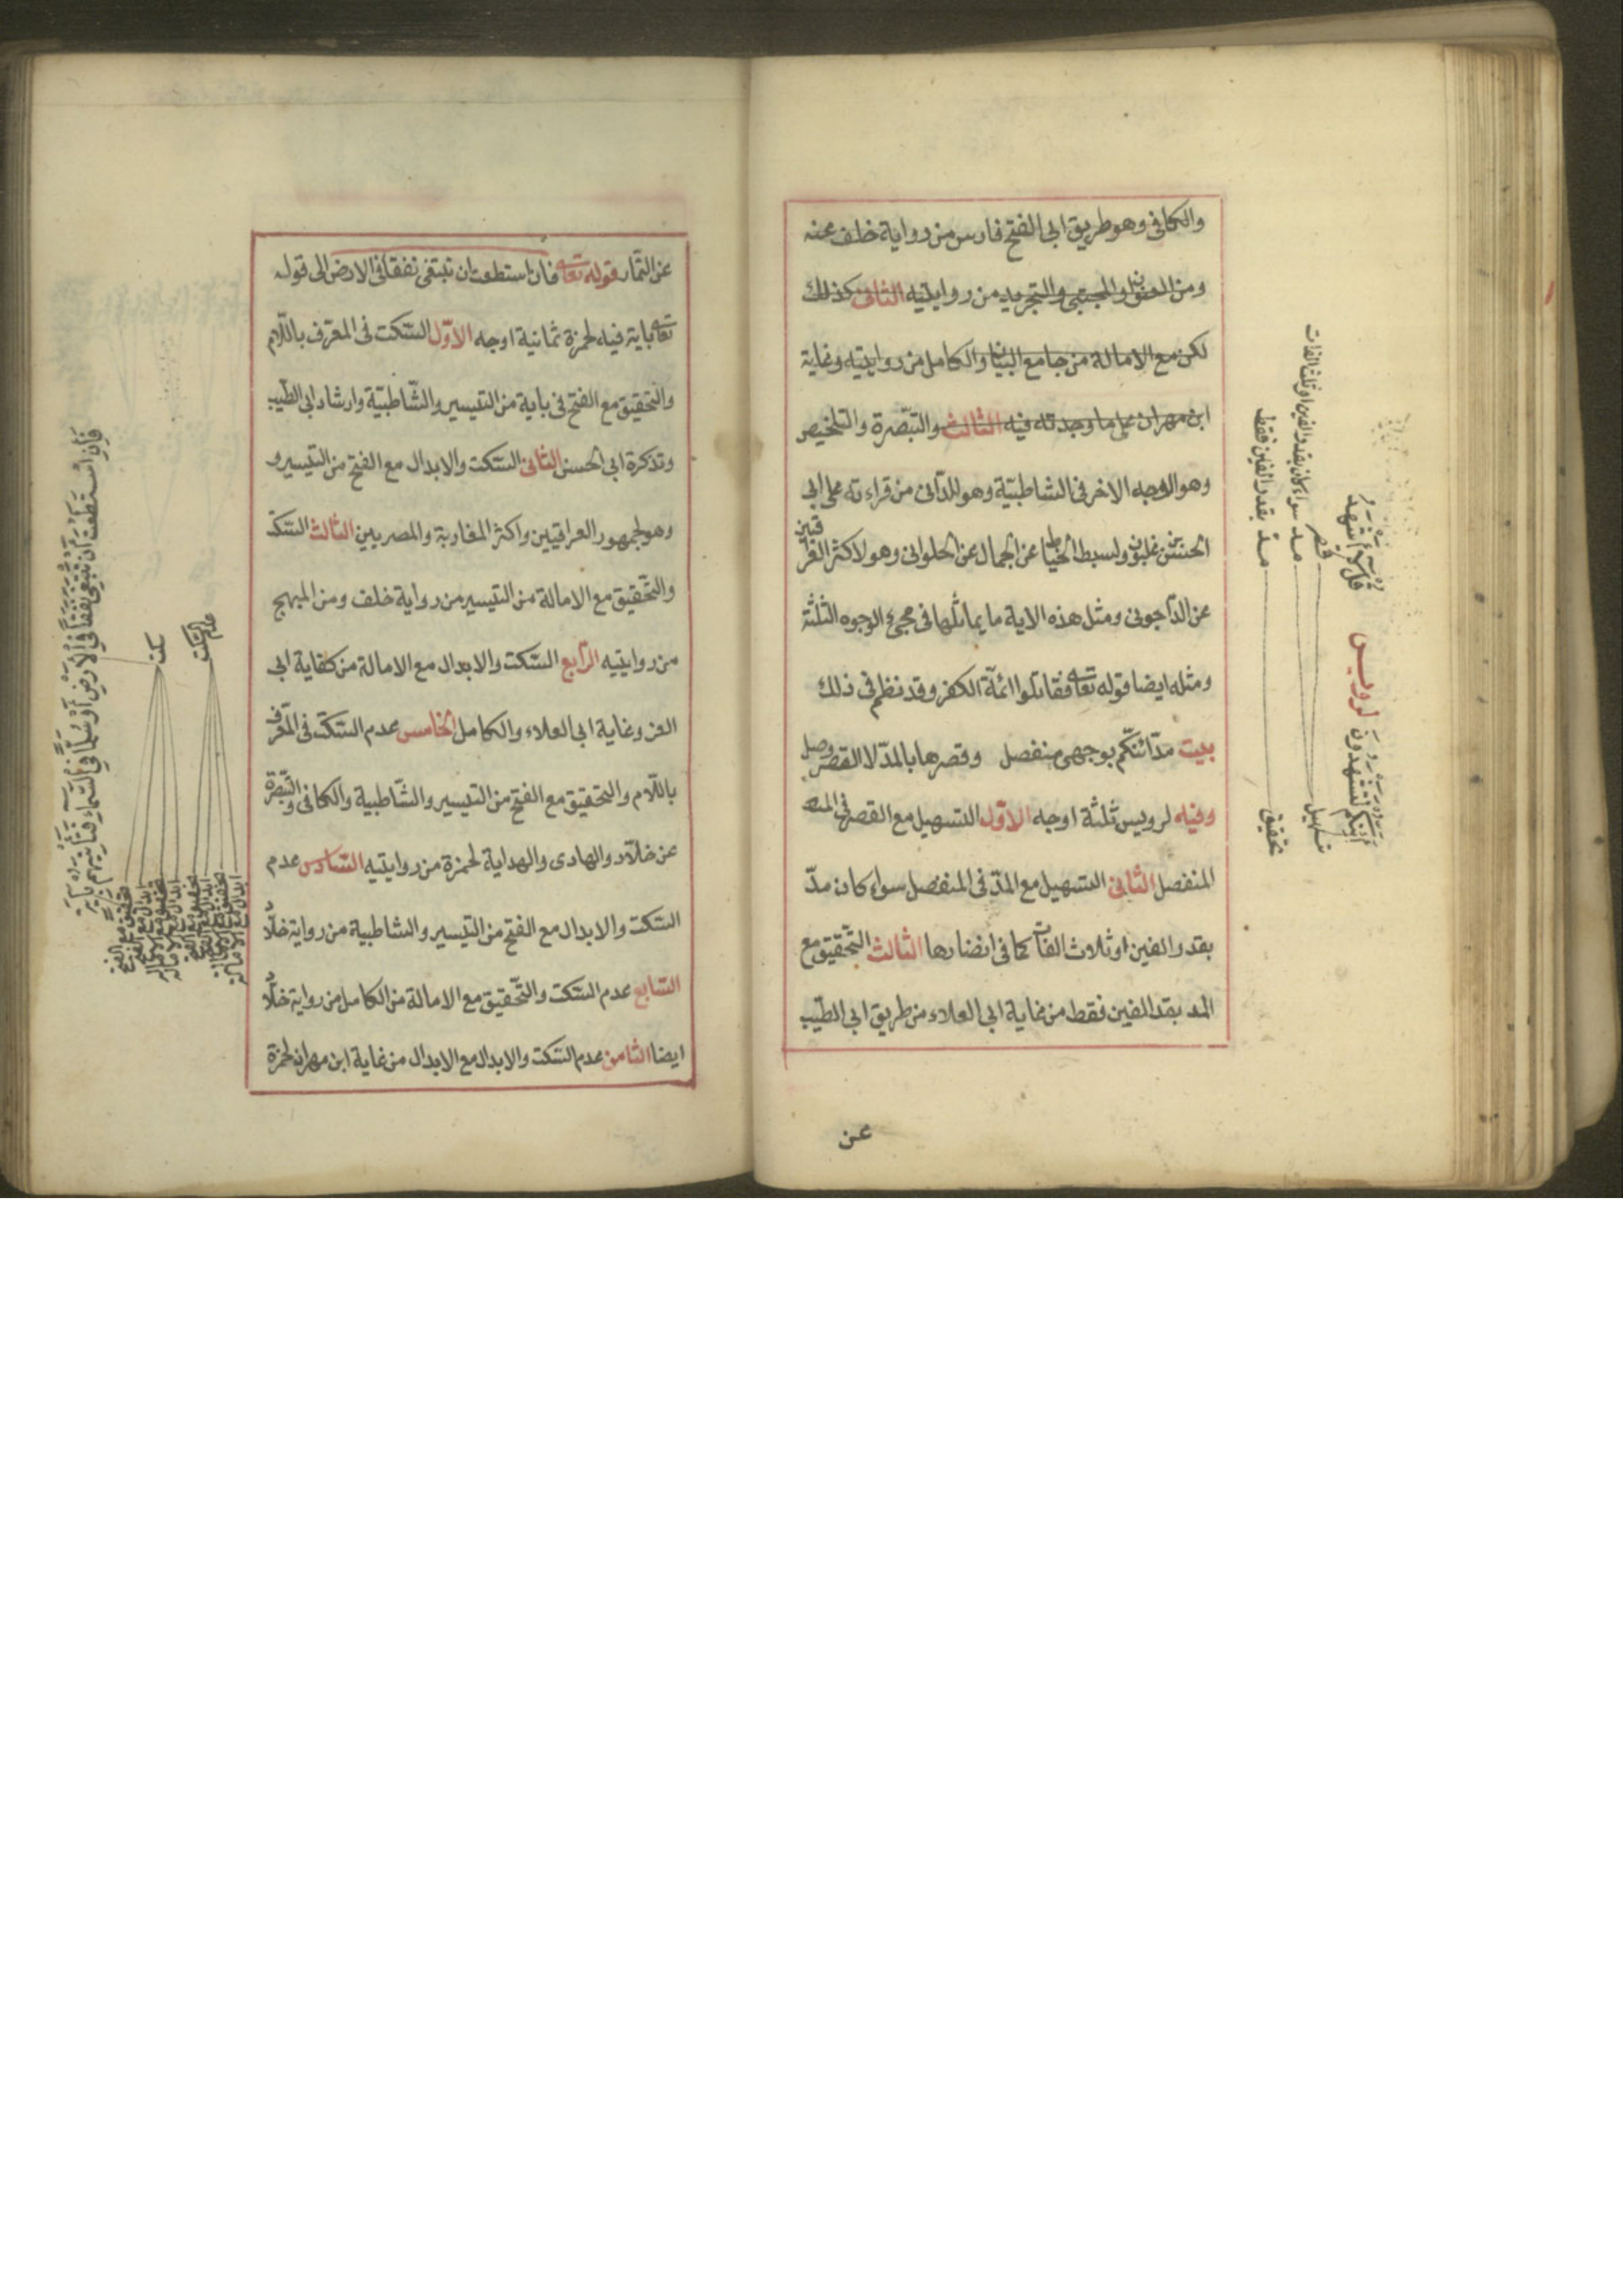 والكافى وهو طريق ابى الفتح فارس من رواية خلف عنه
ومن العنوان والمجتبى والتجريد من روايتيه الثانى كذلك
لكن مع الامالة من جامع البيان والكامل من روايتيه وغاية
ابن مهران على ما وجدته فيه الثالث والتبصرة والتلخيص
وهو الوجه الاخر فى الشاطبيّة وهو للدّانى من قراءته على ابى
الحسن بن غلبون ولسبط الخياط عن الجمال عن الحلوانى وهو لاكثر العراقيين
عن الدّاجونى ومثل هذه الاية ما يماثلها فى مجئ الوجوه الثلثة
ومثله ايضا قوله تعالى فقاتلوا ائمّة الكفر وقد نظم فى ذلك
بيت مدّ ائنّكم بوجهى منفصل وقصرها بالمدّ لا القصر وصل
وفيه لرويس ثلثة اوجه الاوّل التسهيل مع القصر فى المد
المنفصل الثانى التسهيل مع المدّ فى المنفصل سواء كان مدّ
بقدر الفين او ثلاث الفات كا فى انضارها الثالث التّحقيق مع
المد بقدر الفين فقط من غاية ابى العلاء من طريق ابى الطّيب
عن
قُلْ لَا أَشْهَدُ
لرويس
أَئِنَّكُمْ لَتَشْهَدُونَ
قصر
مد سواء كان بقدر الفين او ثلث الفات
مد بقدر الفين فقط
تسهيل
تحقيق
عن التمّار قوله تعالى فان استطعت ان تبتغى نفقا فى الارض الى قوله
تعالى باية فيه لحمزة ثمانية اوجه الاوّل السّكت فى المعرّف باللّام
والتّحقيق مع الفتح فى باية من التيسير والشّاطبيّة وارشاد ابى الطّيب
وتذكرة ابى الحسن الثانى السّكت والابدال مع الفتح من التيسير و
وهو لجمهور العراقيين واكثر المغاربة والمصريين الثالث السّكت
والتّحقيق مع الامالة من التيسير من رواية خلف ومن المبهج
من روايتيه الرّابع السّكت والابدال مع الامالة من كفاية ابى
العز وغاية ابى العلاء والكامل الخامس عدم السّكت فى المعّرف
باللّام والتحقيق مع الفتح من التيسير والشّاطبية والكافى والتّبصرة
عن خلّاد والهادى والهداية لحمزة من روايتيه السّادس عدم
السّكت والابدال مع الفتح من التيسير والشاطبية من رواية خلّاد
السّابع عدم السّكت والتّحقيق مع الامالة من الكامل من رواية خلّاد
ايضا الثامن عدم السّكت والابدال مع الابدال من غاية ابن مهران لحمزة
فَإِنِ اسْتَطَعْتَ أَنْ تَبْتَغِيَ نَفَقًا فِي الْأَرْضِ أَوْ سُلَّمًا فِي السَّمَاءِ فَتَأْتِيَهُمْ بِآيَةٍ
سكت
عدم السّكت
تحقيق مع الفتح
ابدال مع الفتح
تحقيق مع الامالة
ابدال مع الامالة
تحقيق مع الفتح
ابدال مع الفتح
تحقيق مع الامالة
ابدال مع الامالة